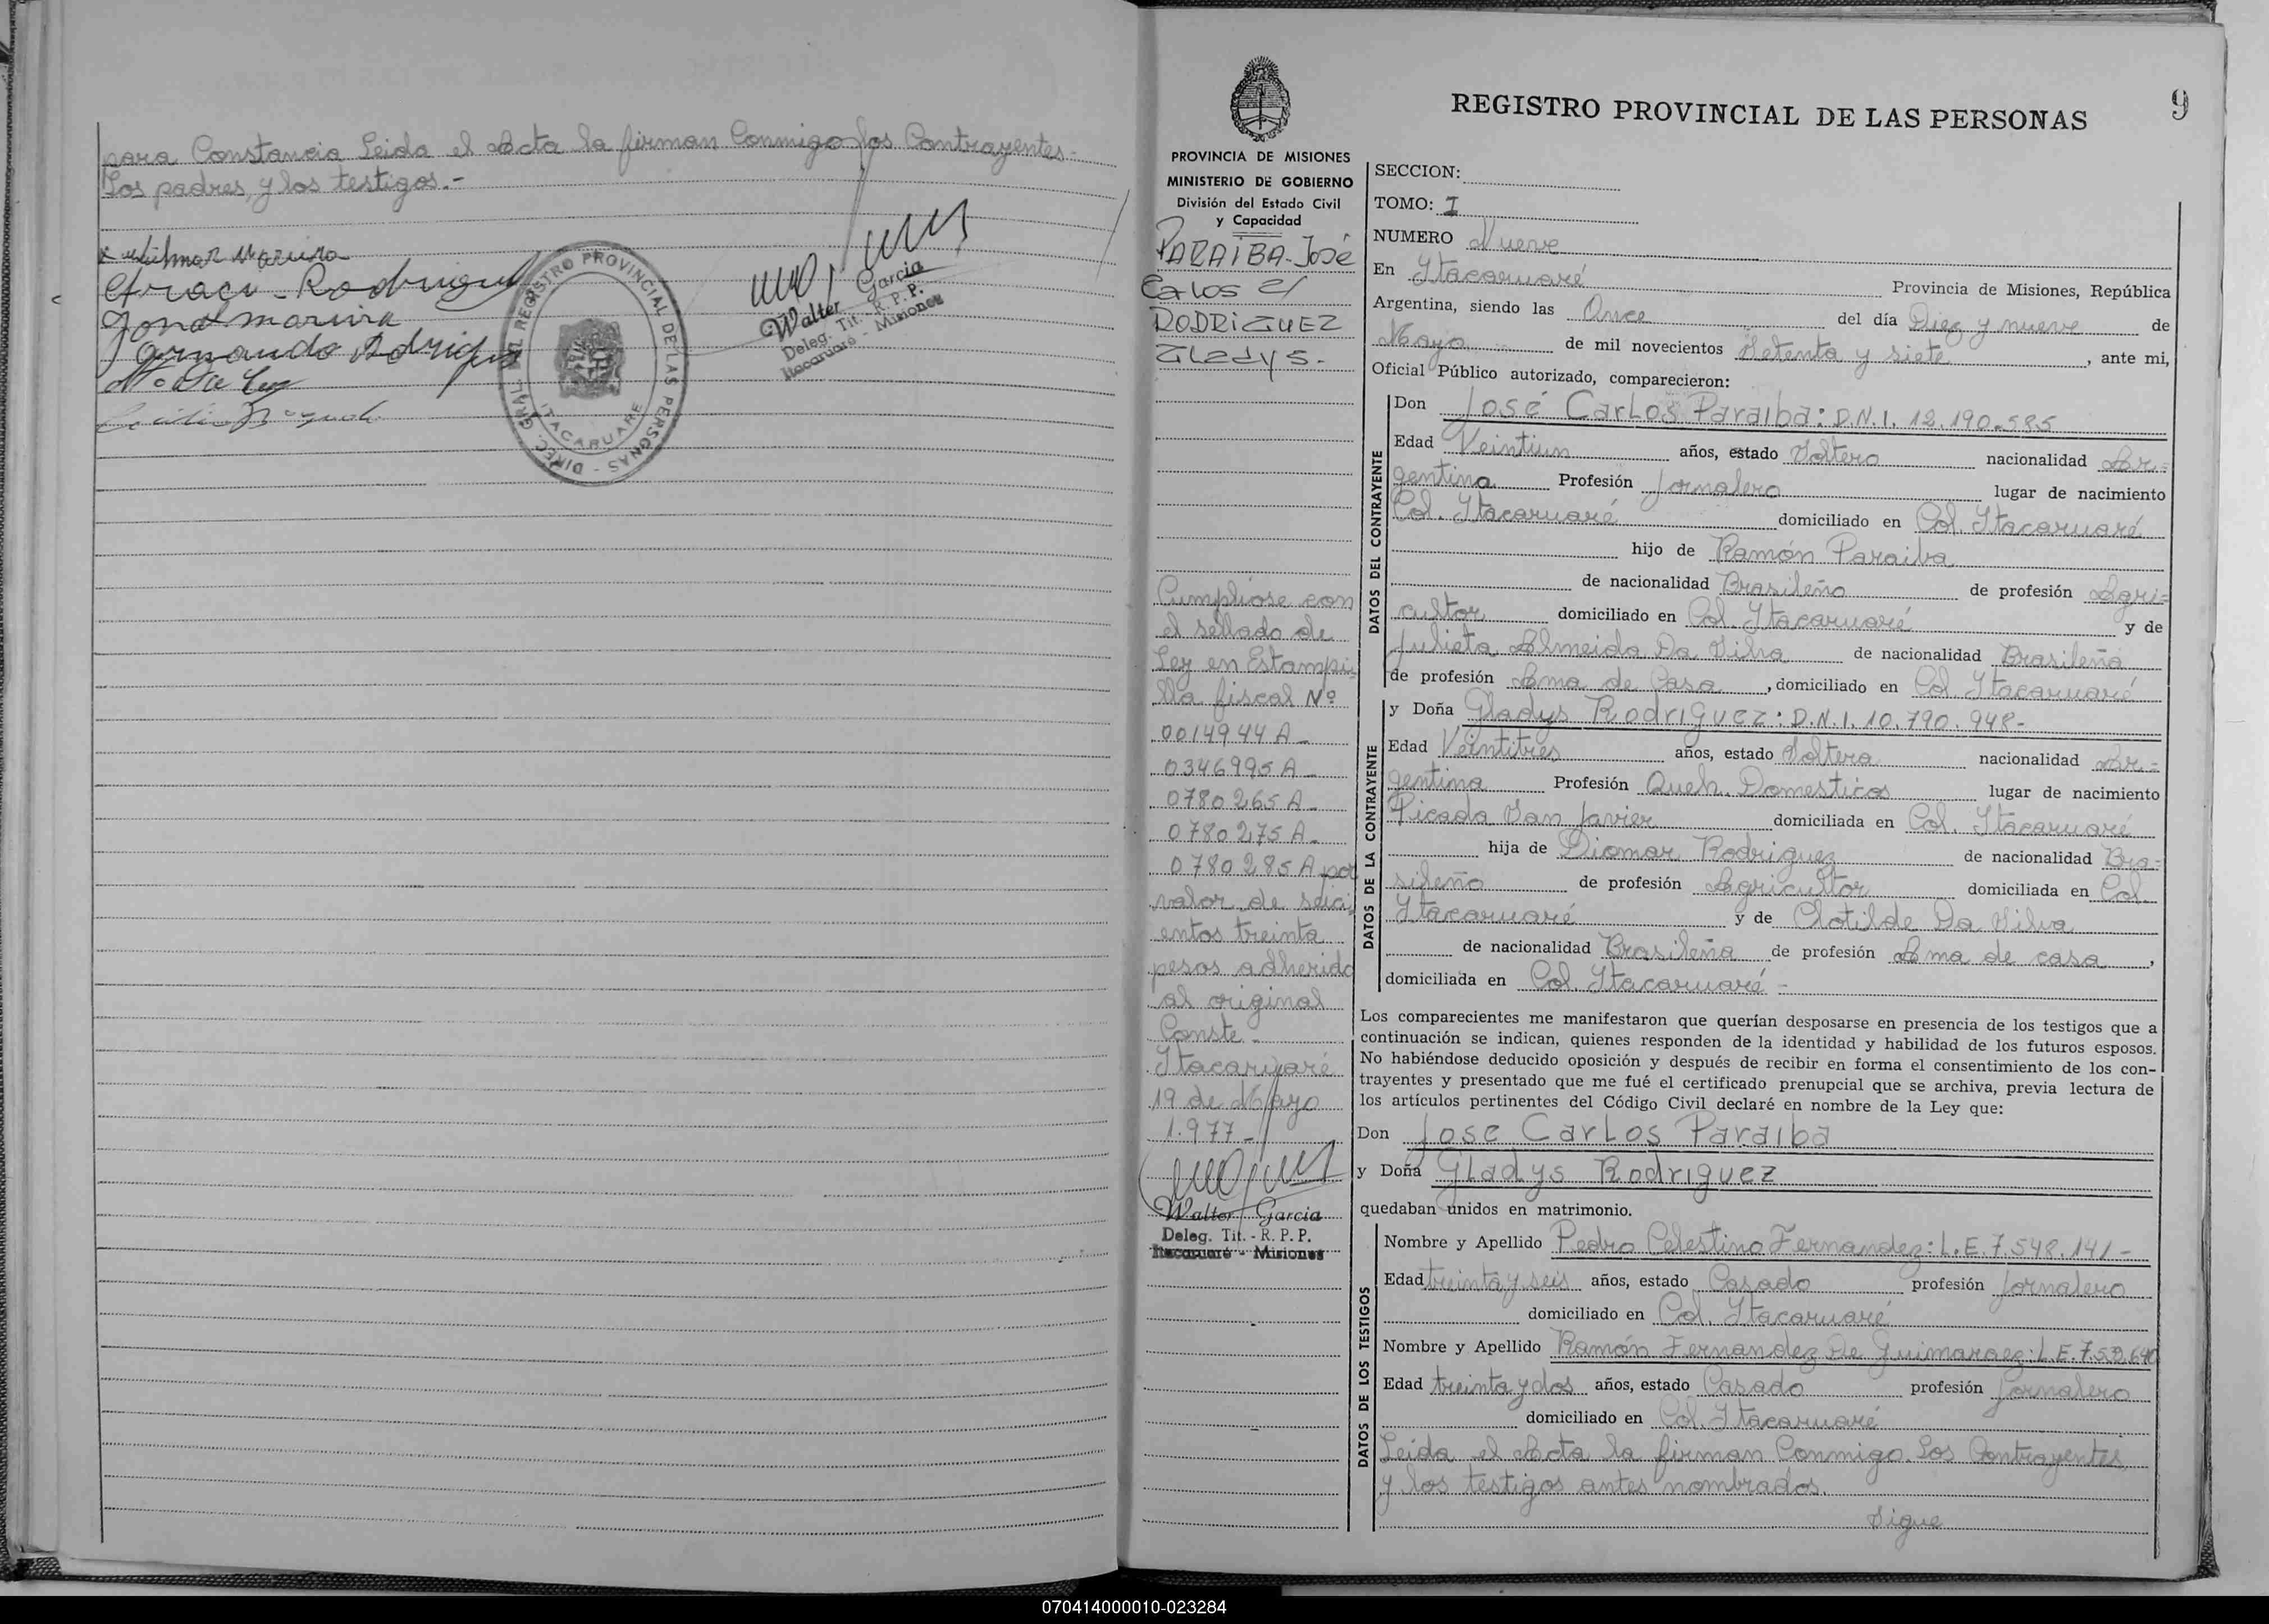 para Constancia Leida el Acta la firman Conmigo los Contrayentes-
Los padres, y los testigos.-
Rodrigue
Walter Garcia
Deleg. Tit. - R. P. P.
Itacaruaré - Misiones
DIREC. GRAL. DEL REGISTRO PROVINCIAL DE LAS PERSONAS -
ITACARUARE
9
REGISTRO PROVINCIAL DE LAS PERSONAS
PROVINCIA DE MISIONES
MINISTERIO DE GOBIERNO
División del Estado Civil
y Capacidad
PARAiBA-José
Carlos c/
RODRiGUEZ
GLadys.-
Cumpliose con
el sellado de
Ley en Estampi-
lla fiscal Nº
0014944 A-
0346995 A-
0780265 A-
0780275 A-
0780285 A por
valor de seici
entos treinta
pesos adherido
al original
Conste-
Itacaruaré
19 de Mayo
1.977-
Walter Garcia
Deleg. Tit. - R. P. P.
Itacaruaré - Misiones
SECCION:
TOMO: I
NUMERO Nueve
En Itacaruaré Provincia de Misiones, República
Argentina, siendo las Once del día Diez y nueve de
Mayo de mil novecientos Setenta y siete, ante mi,
Oficial Público autorizado, comparecieron:
DATOS DEL CONTRAYENTE
Don José Carlos Paraiba: D.N.I. 12.190.585
Edad Veintiun años, estado Soltero nacionalidad Ar-
gentina Profesión Jornalero lugar de nacimiento
Col. Itacaruaré domiciliado en Col. Itacaruaré
hijo de Ramón Paraiba
de nacionalidad Brasileño de profesión Agri-
cultor domiciliado en Col. Itacaruaré y de
Julieta Almeida Da Silva de nacionalidad Brasileña
de profesión Ama de Casa, domiciliado en Col Itacaruaré
DATOS DE LA CONTRAYENTE
y Doña Gladys Rodriguez: D.N.I. 10.790.948-
Edad Veintitres años, estado Soltera nacionalidad Ar-
gentina Profesión Queh. Domesticos lugar de nacimiento
Picada San Javier domiciliada en Col. Itacaruaré
hija de Diomar Rodriguez de nacionalidad Bra-
sileño de profesión Agricultor domiciliada en Col.
Itacaruaré y de Clotilde Da Silva
de nacionalidad Brasileña de profesión Ama de casa,
domiciliada en Col. Itacaruaré-
Los comparecientes me manifestaron que querían desposarse en presencia de los testigos que a
continuación se indican, quienes responden de la identidad y habilidad de los futuros esposos.
No habiéndose deducido oposición y después de recibir en forma el consentimiento de los con-
trayentes y presentado que me fué el certificado prenupcial que se archiva, previa lectura de
los artículos pertinentes del Código Civil declaré en nombre de la Ley que:
Don Jose Carlos Paraiba
y Doña Gladys Rodriguez
quedaban unidos en matrimonio.
DATOS DE LOS TESTIGOS
Nombre y Apellido Pedro Celestino Fernandez: L.E. 7.548.141-
Edad treinta y seis años, estado Casado profesión Jornalero
domiciliado en Col. Itacaruaré
Nombre y Apellido Ramón Fernandez De Guimaraez: L.E.
Edad treinta y dos años, estado Casado profesión Jornalero
domiciliado en Col. Itacaruaré
Leida el Acta la firman Conmigo Los Contrayentes
y los testigos antes nombrados.
Sigue
070414000010-023284